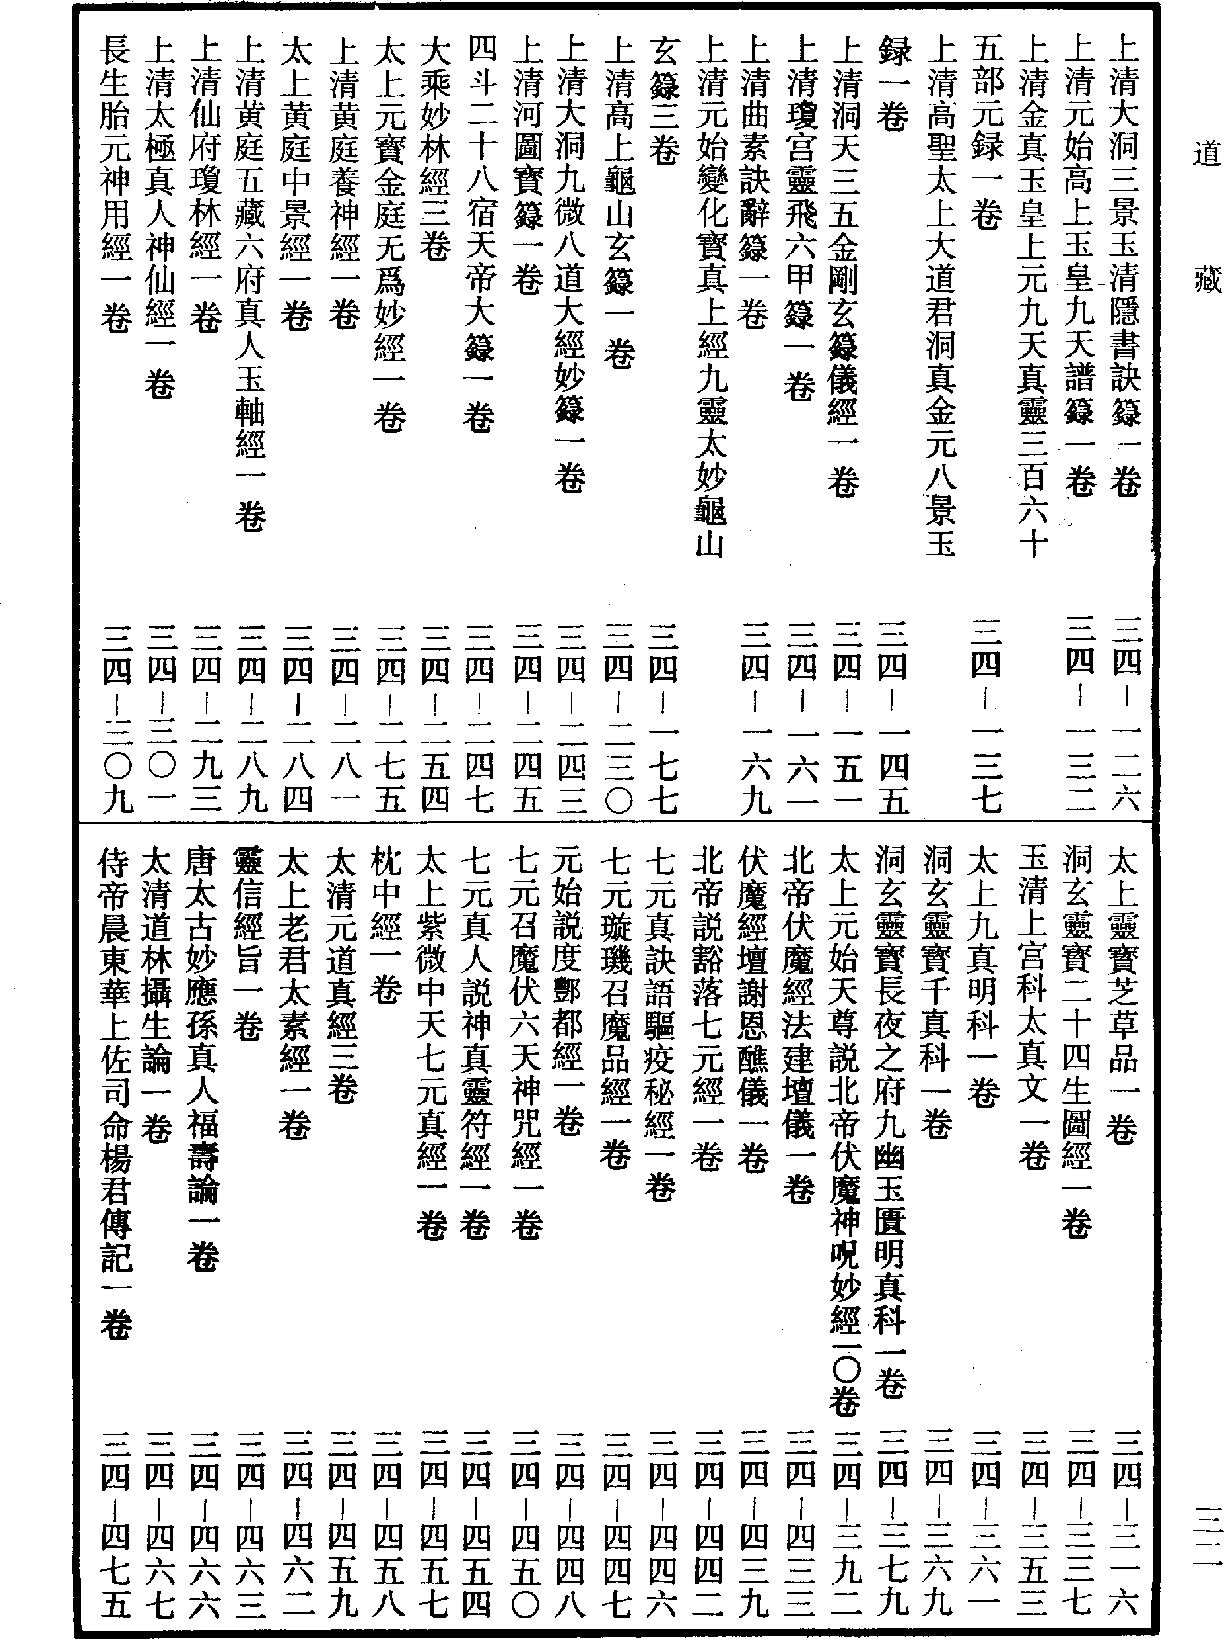 道藏
三二
上清大洞三景玉清隱書訣籙一卷 三四－一二六
上清元始高上玉皇九天譜籙一卷 三四－一三二
上清金真玉皇上元九天真靈三百六十
五部元録一卷 三四－一三七
上清高聖太上大道君洞真金元八景玉
録一卷 三四－一四五
上清洞天三五金剛玄籙儀經一卷 三四－一五一
上清瓊宮靈飛六甲籙一卷 三四－一六一
上清曲素訣辭籙一卷 三四－一六九
上清元始變化寶真上經九靈太妙龜山
玄籙三卷 三四－一七七
上清高上龜山玄籙一卷 三四－二三〇
上清大洞九微八道大經妙籙一卷 三四－二四三
上清河圖寶籙一卷 三四－二四五
四斗二十八宿天帝大籙一卷 三四－二四七
大乘妙林經三卷 三四－二五四
太上元寶金庭无爲妙經一卷 三四－二七五
上清黄庭養神經一卷 三四－二八一
太上黄庭中景經一卷 三四－二八四
上清黄庭五藏六府真人玉軸經一卷 三四－二八九
上清仙府瓊林經一卷 三四－二九三
上清太極真人神仙經一卷 三四－三〇一
長生胎元神用經一卷 三四－三〇九
太上靈寶芝草品一卷 三四－三一六
洞玄靈寶二十四生圖經一卷 三四－三三七
玉清上宮科太真文一卷 三四－三五三
太上九真明科一卷 三四－三六一
洞玄靈寶千真科一卷 三四－三六九
洞玄靈寶長夜之府九幽玉匱明真科一卷 三四－三七九
太上元始天尊説北帝伏魔神呪妙經一〇卷 三四－三九二
北帝伏魔經法建壇儀一卷 三四－四三三
伏魔經壇謝恩醮儀一卷 三四－四三九
北帝説豁落七元經一卷 三四－四四二
七元真訣語驅疫秘經一卷 三四－四四六
七元璇璣召魔品經一卷 三四－四四七
元始説度酆都經一卷 三四－四四八
七元召魔伏六天神咒經一卷 三四－四五〇
七元真人説神真靈符經一卷 三四－四五四
太上紫微中天七元真經一卷 三四－四五七
枕中經一卷 三四－四五八
太清元道真經三卷 三四－四五九
太上老君太素經一卷 三四－四六二
靈信經旨一卷 三四－四六三
唐太古妙應孫真人福壽論一卷 三四－四六六
太清道林攝生論一卷 三四－四六七
侍帝晨東華上佐司命楊君傳記一卷 三四－四七五